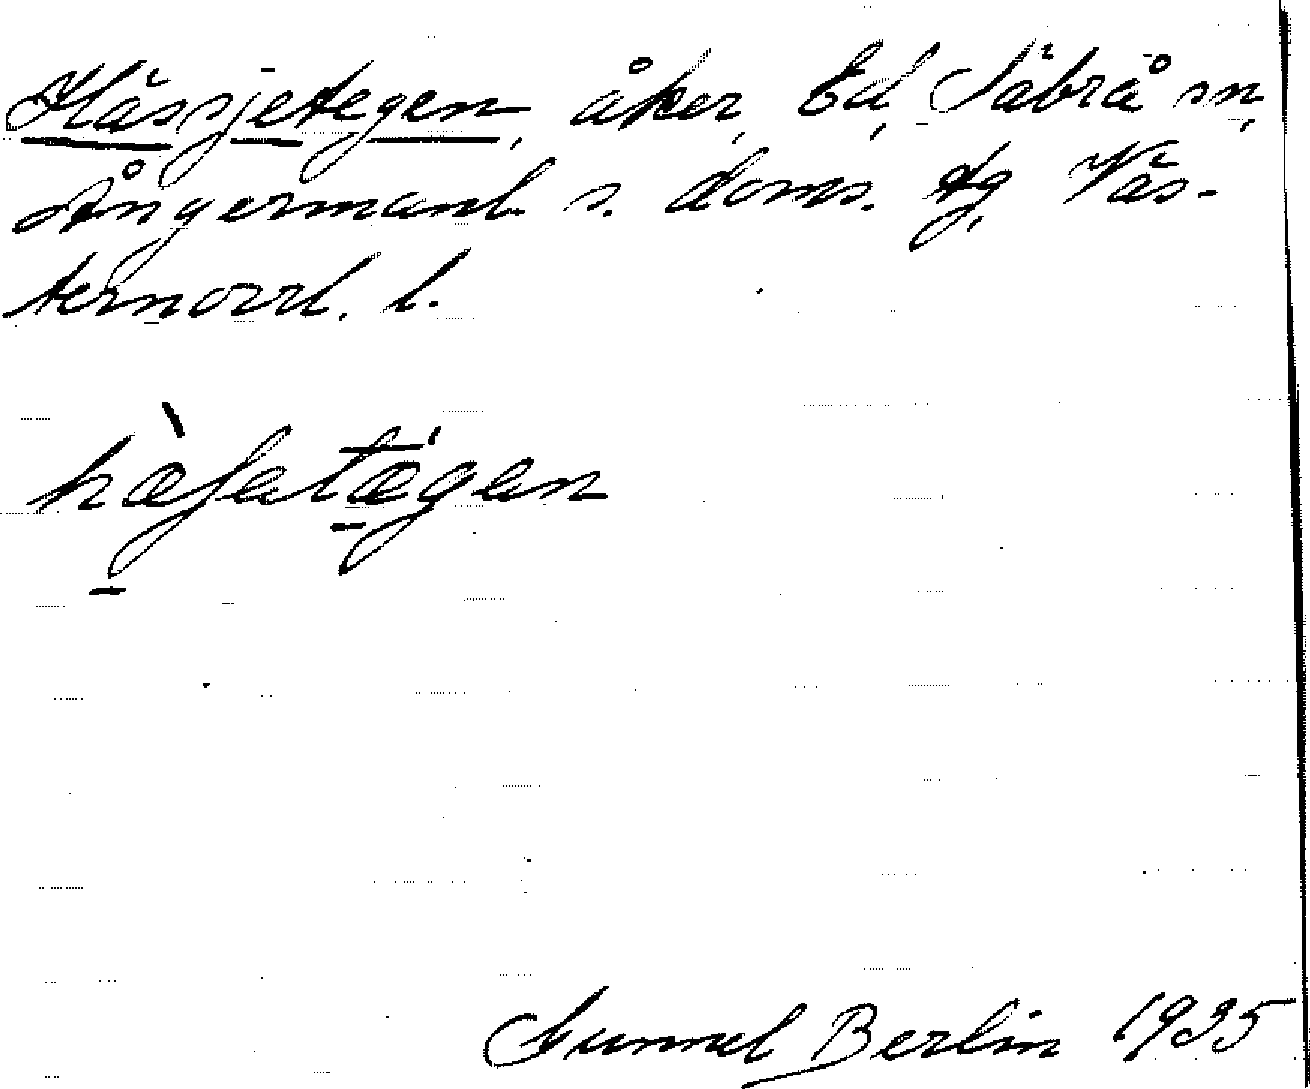 Hässjetegen, åker, Ed, Säbrå sn,
Ångermanl. s. doms. tg, Väs-
ternorrl. l.
hæ̀ʃetǽgen
Gunnel Berlin 1935